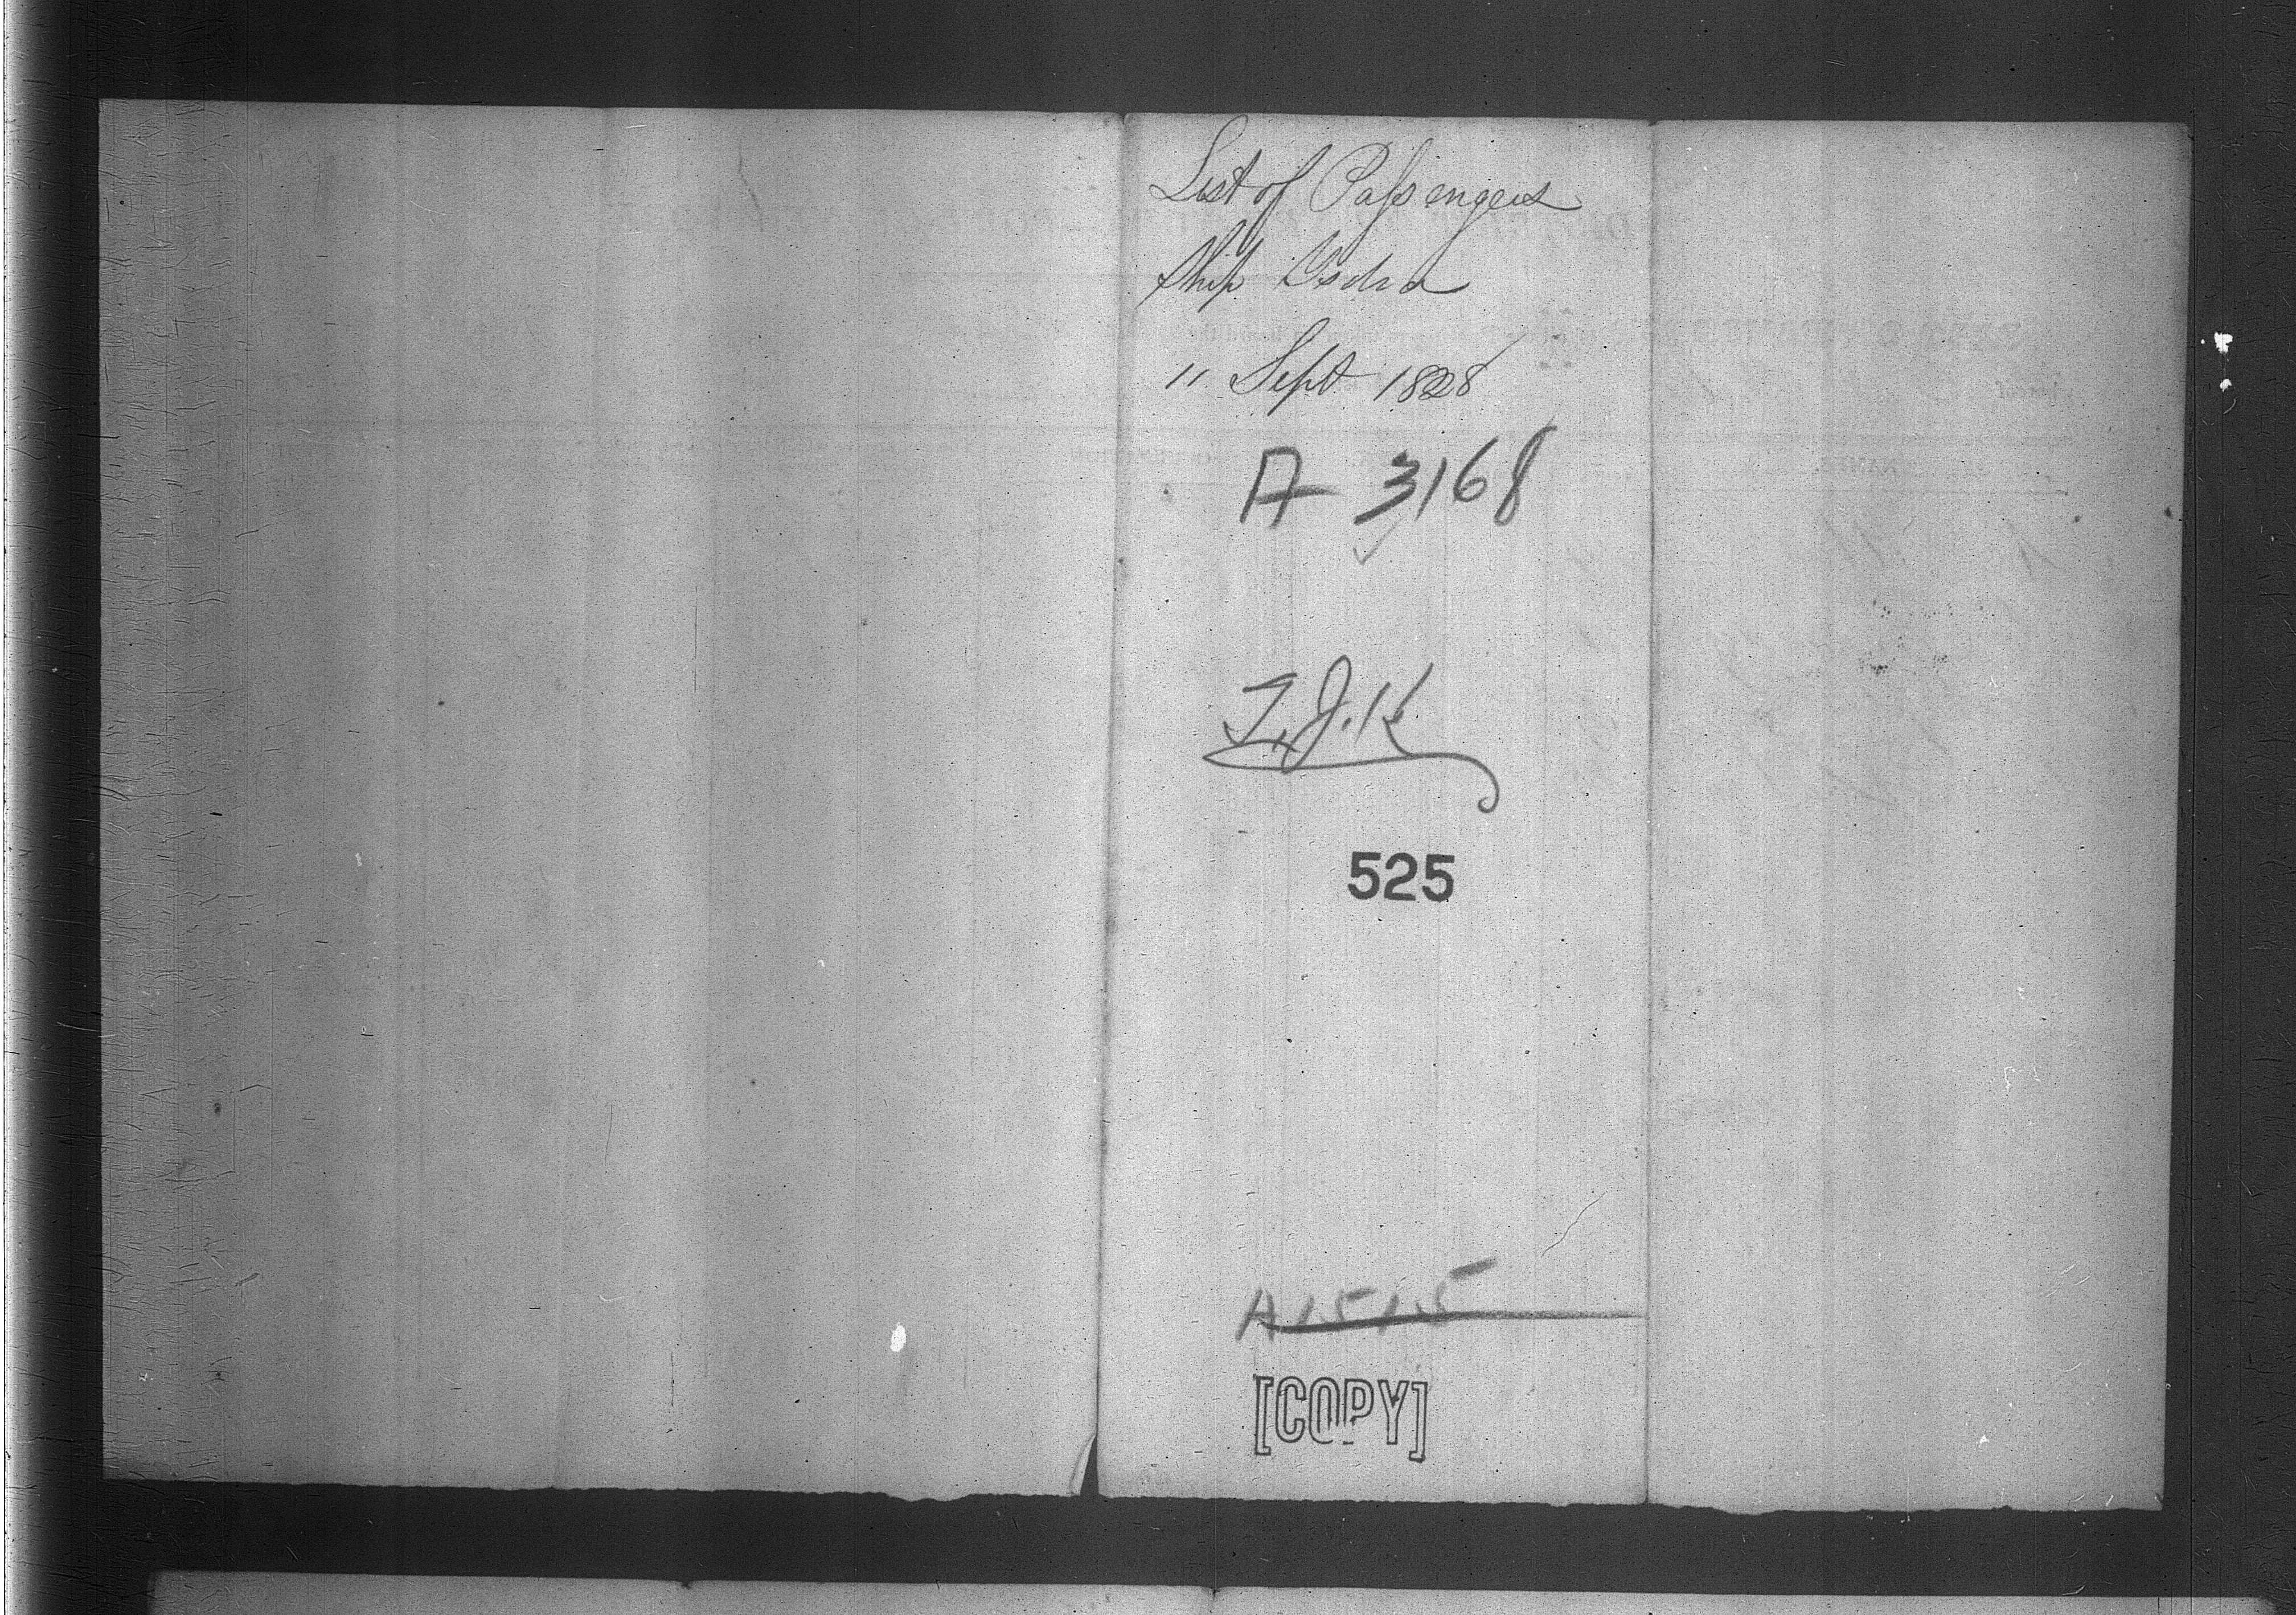 List of Passengers
Ship
11 Sept 1828
A 3168
T.J.K
525
A1515
[COPY]